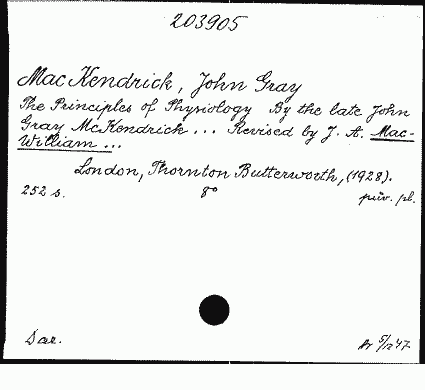 203905
Mac Kendrick, John Gray
The Principles of Physiology By the late John
Gray McKendrick ... Revised by J. A. Mac-
William ...
London, Thornton Butterworth, (1928).
252 s. 8° püv. pl.
Dar.
5/247